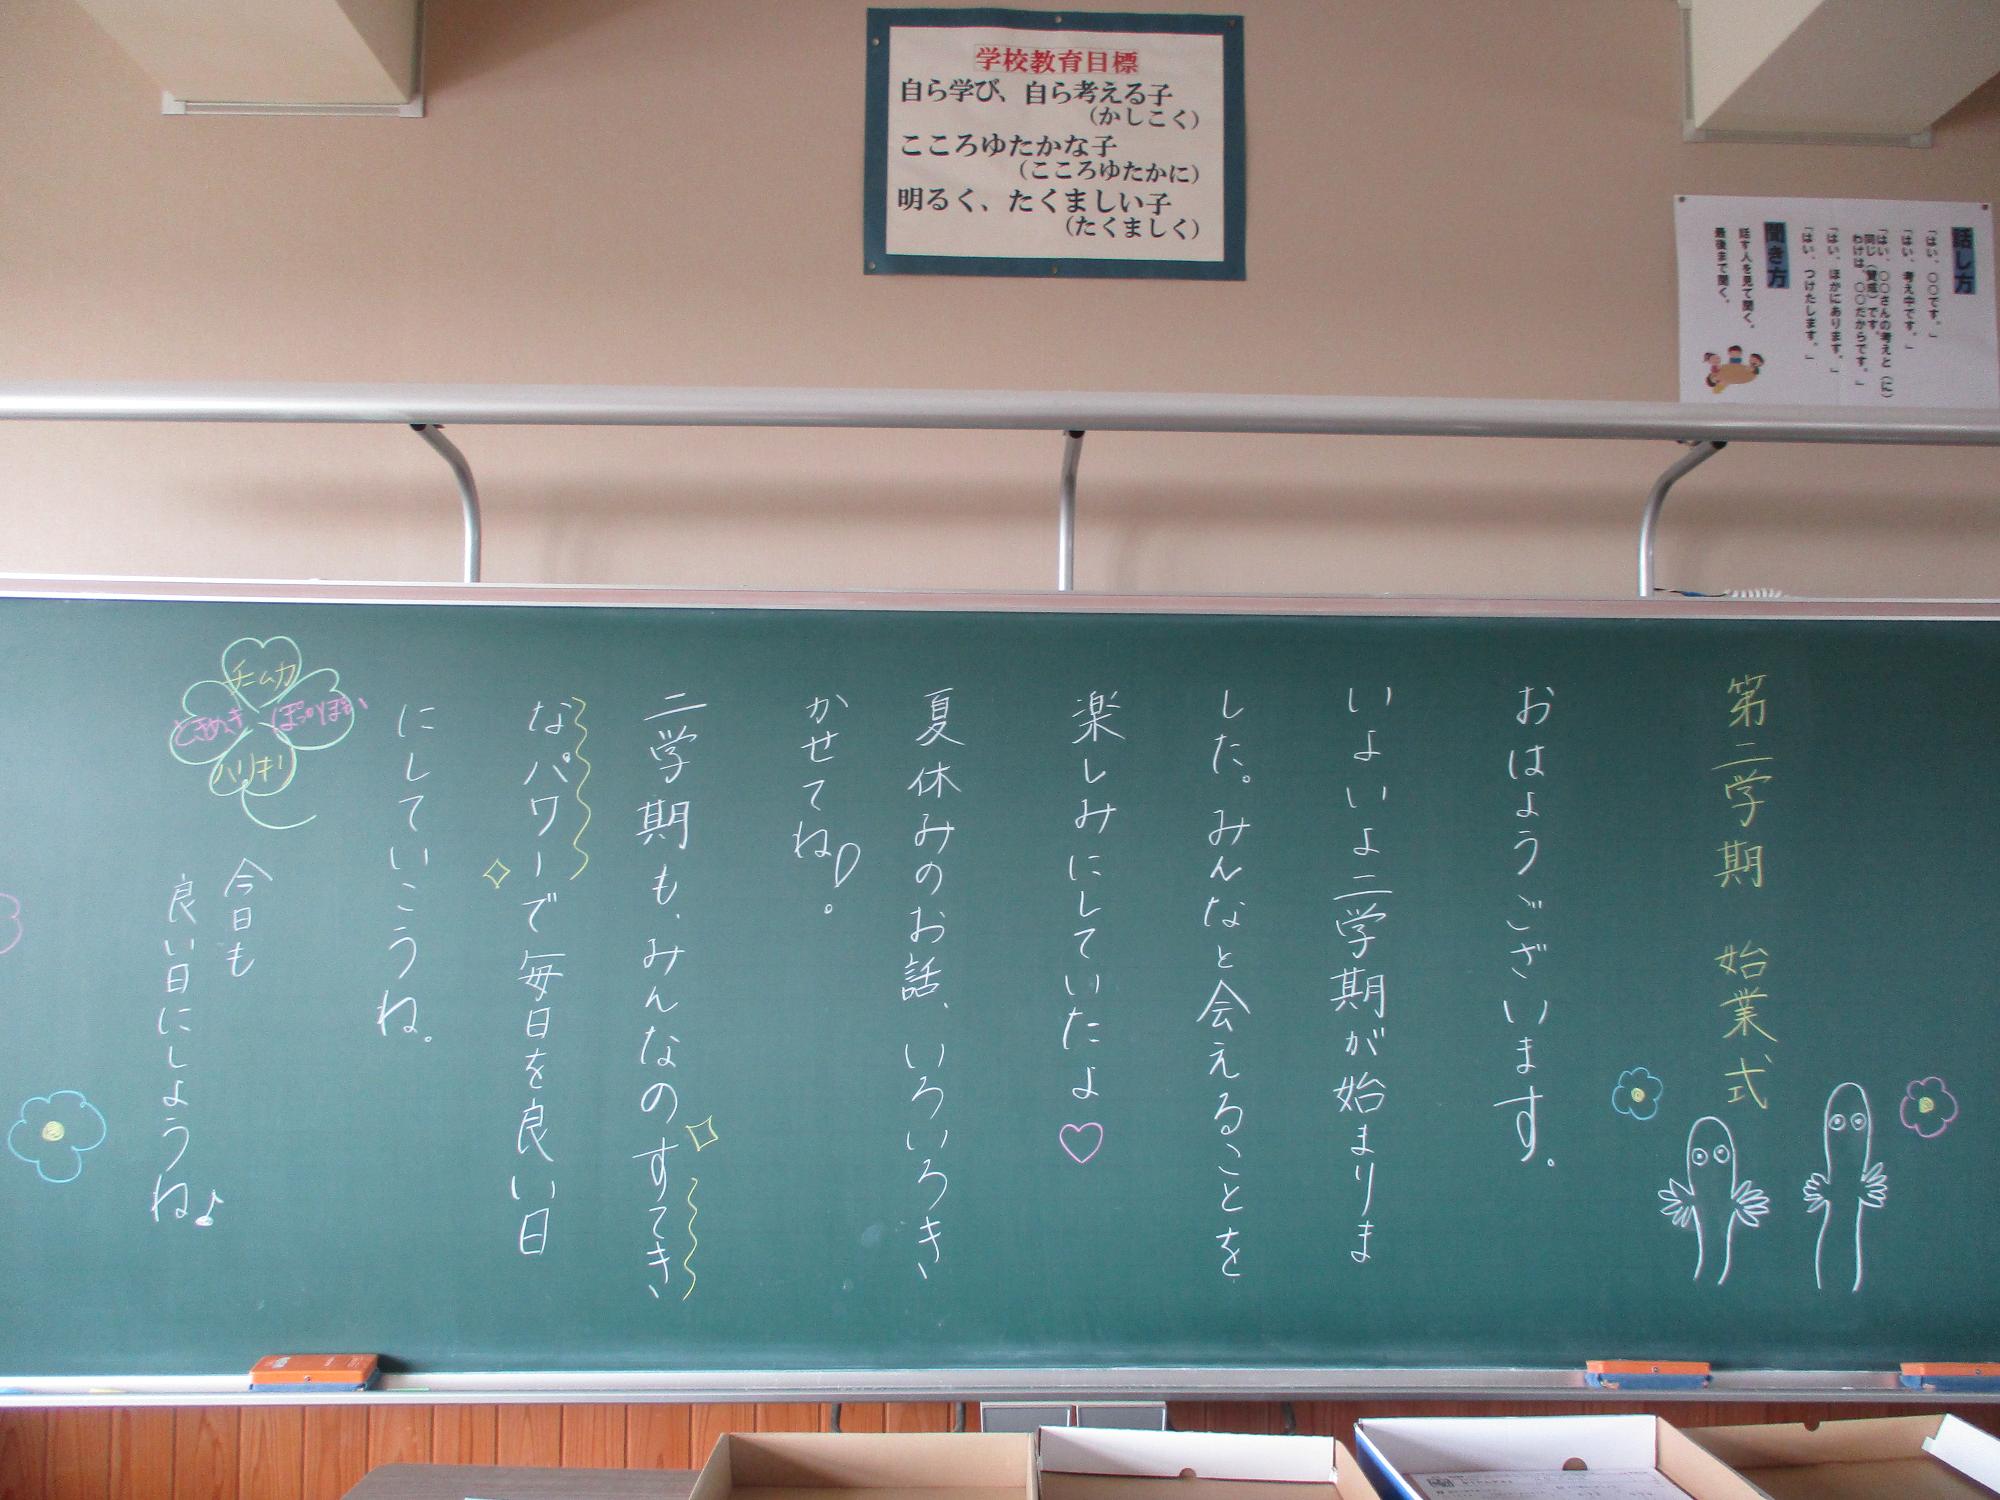 学校教育目標
自ら学び、自ら考える子
(かしこく)
こころゆたかな子
(こころゆたかに)
明るく、たくましい子
(たくましく)
話し方
「はい、〇〇です。」
「はい、考え中です。」
「はい、〇〇さんの考えと(に)
同じ(賛成)です。
わけは、〇〇だからです。」
「はい、ほかにあります。」
「はい、つけたします。」
聞き方
話す人を見て聞く。
最後まで聞く。
第二学期 始業式
おはようございます。
いよいよ二学期が始まりま
した。みんなと会えることを
楽しみにしていたよ♡
夏休みのお話、いろいろき
かせてね!
二学期も、みんなのすてき
なパワーで毎日を良い日
にしていこうね。
チーム力
ときめき
ぽっかぽか
ハリキリ
今日も
良い日にしようね♪